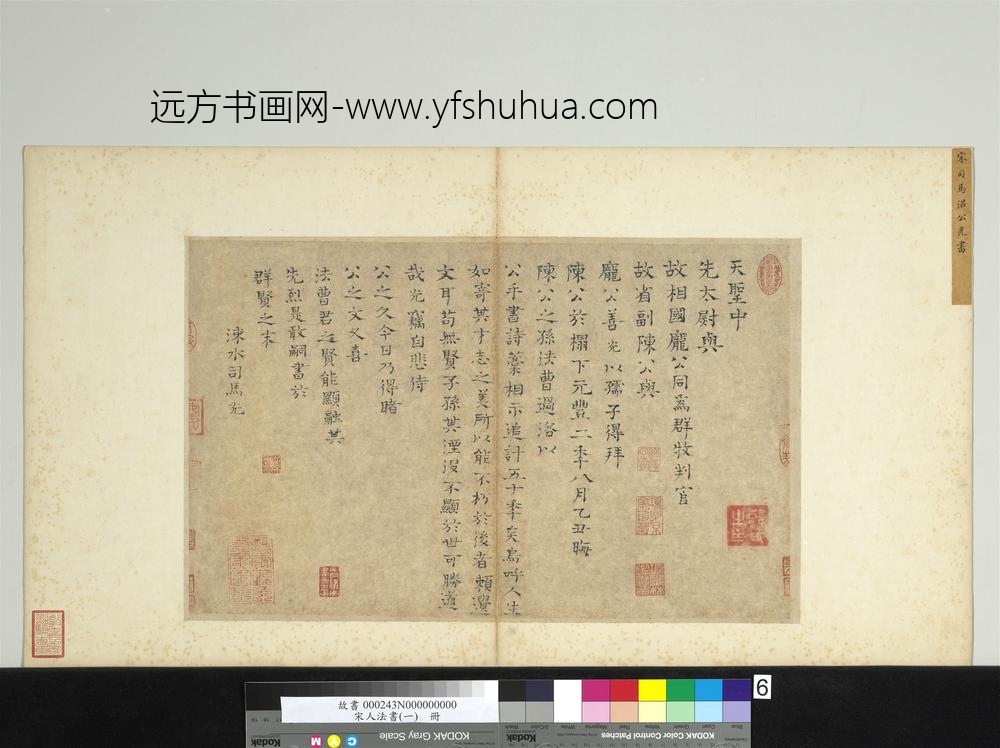 远方书画网-www.yfshuhua.com
宋司馬溫公光書
天聖中
先太尉與
故相國龐公同爲群牧判官
故省副陳公與
龐公善光以孺子得拜
陳公於榻下元豐二年八月乙丑晦
陳公之孫法曹過洛以
公手書詩藁相示追計五十年矣烏呼人生
如寄其才志之美所以能不朽於後者賴遺
文耳苟無賢子孫其湮沒不顯於世可勝道
哉光竊自悲侍
公之久今日乃得睹
公之文又喜
法曹君之賢能顯融其
先烈是敢嗣書於
群賢之末
涑水司馬光
6
故書 000243N000000000
宋人法書(一) 冊
KODAK Gray Scale
KODAK Color Control Patches
Kodak
Kodak
C Y M